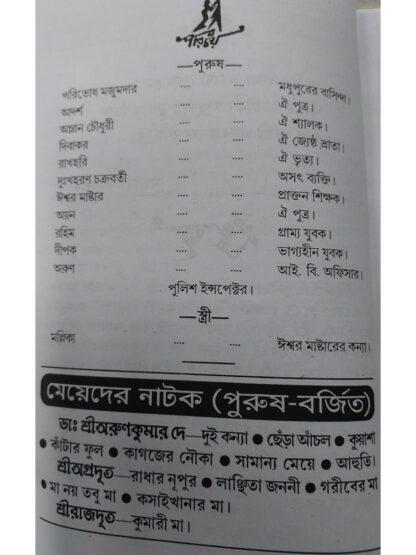 পরিচয়
—পুরুষ—
পরিতোষ মজুমদার .... .... মধুপুরের বাসিন্দা।
আদর্শ .... .... ঐ পুত্র।
অম্লান চৌধুরী .... .... ঐ শ্যালক।
দিবাকর .... .... ঐ জ্যেষ্ঠ ভ্রাতা।
রাখহরি .... .... ঐ ভৃত্য।
দুঃখহরণ চক্রবর্তী .... .... অসৎ ব্যক্তি।
ঈশ্বর মাষ্টার .... .... প্রাক্তন শিক্ষক।
অয়ন .... .... ঐ পুত্র।
রহিম .... .... গ্রাম্য যুবক।
দীপক .... .... ভাগ্যহীন যুবক।
অরুণ .... .... আই. বি. অফিসার।
পুলিশ ইন্সপেক্টর।
—স্ত্রী—
মল্লিকা .... .... ঈশ্বর মাষ্টারের কন্যা।
মেয়েদের নাটক (পুরুষ-বর্জিত)
ডাঃ শ্রীঅরুণকুমার দে—দুই কন্যা ● ছেঁড়া আঁচল ● কুয়াশা
● কাঁটার ফুল ● কাগজের নৌকা ● সামান্য মেয়ে ● আহুতি।
শ্রীঅগ্রদূত—রাধার নূপুর ● লাঞ্ছিতা জননী ● গরীবের মা
● মা নয় তবু মা ● কসাইখানার মা।
শ্রীরাজদূত—কুমারী মা।